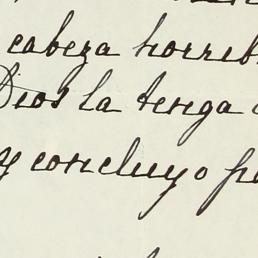 cabeza horrib
Dios la tenga
y concluyo pe